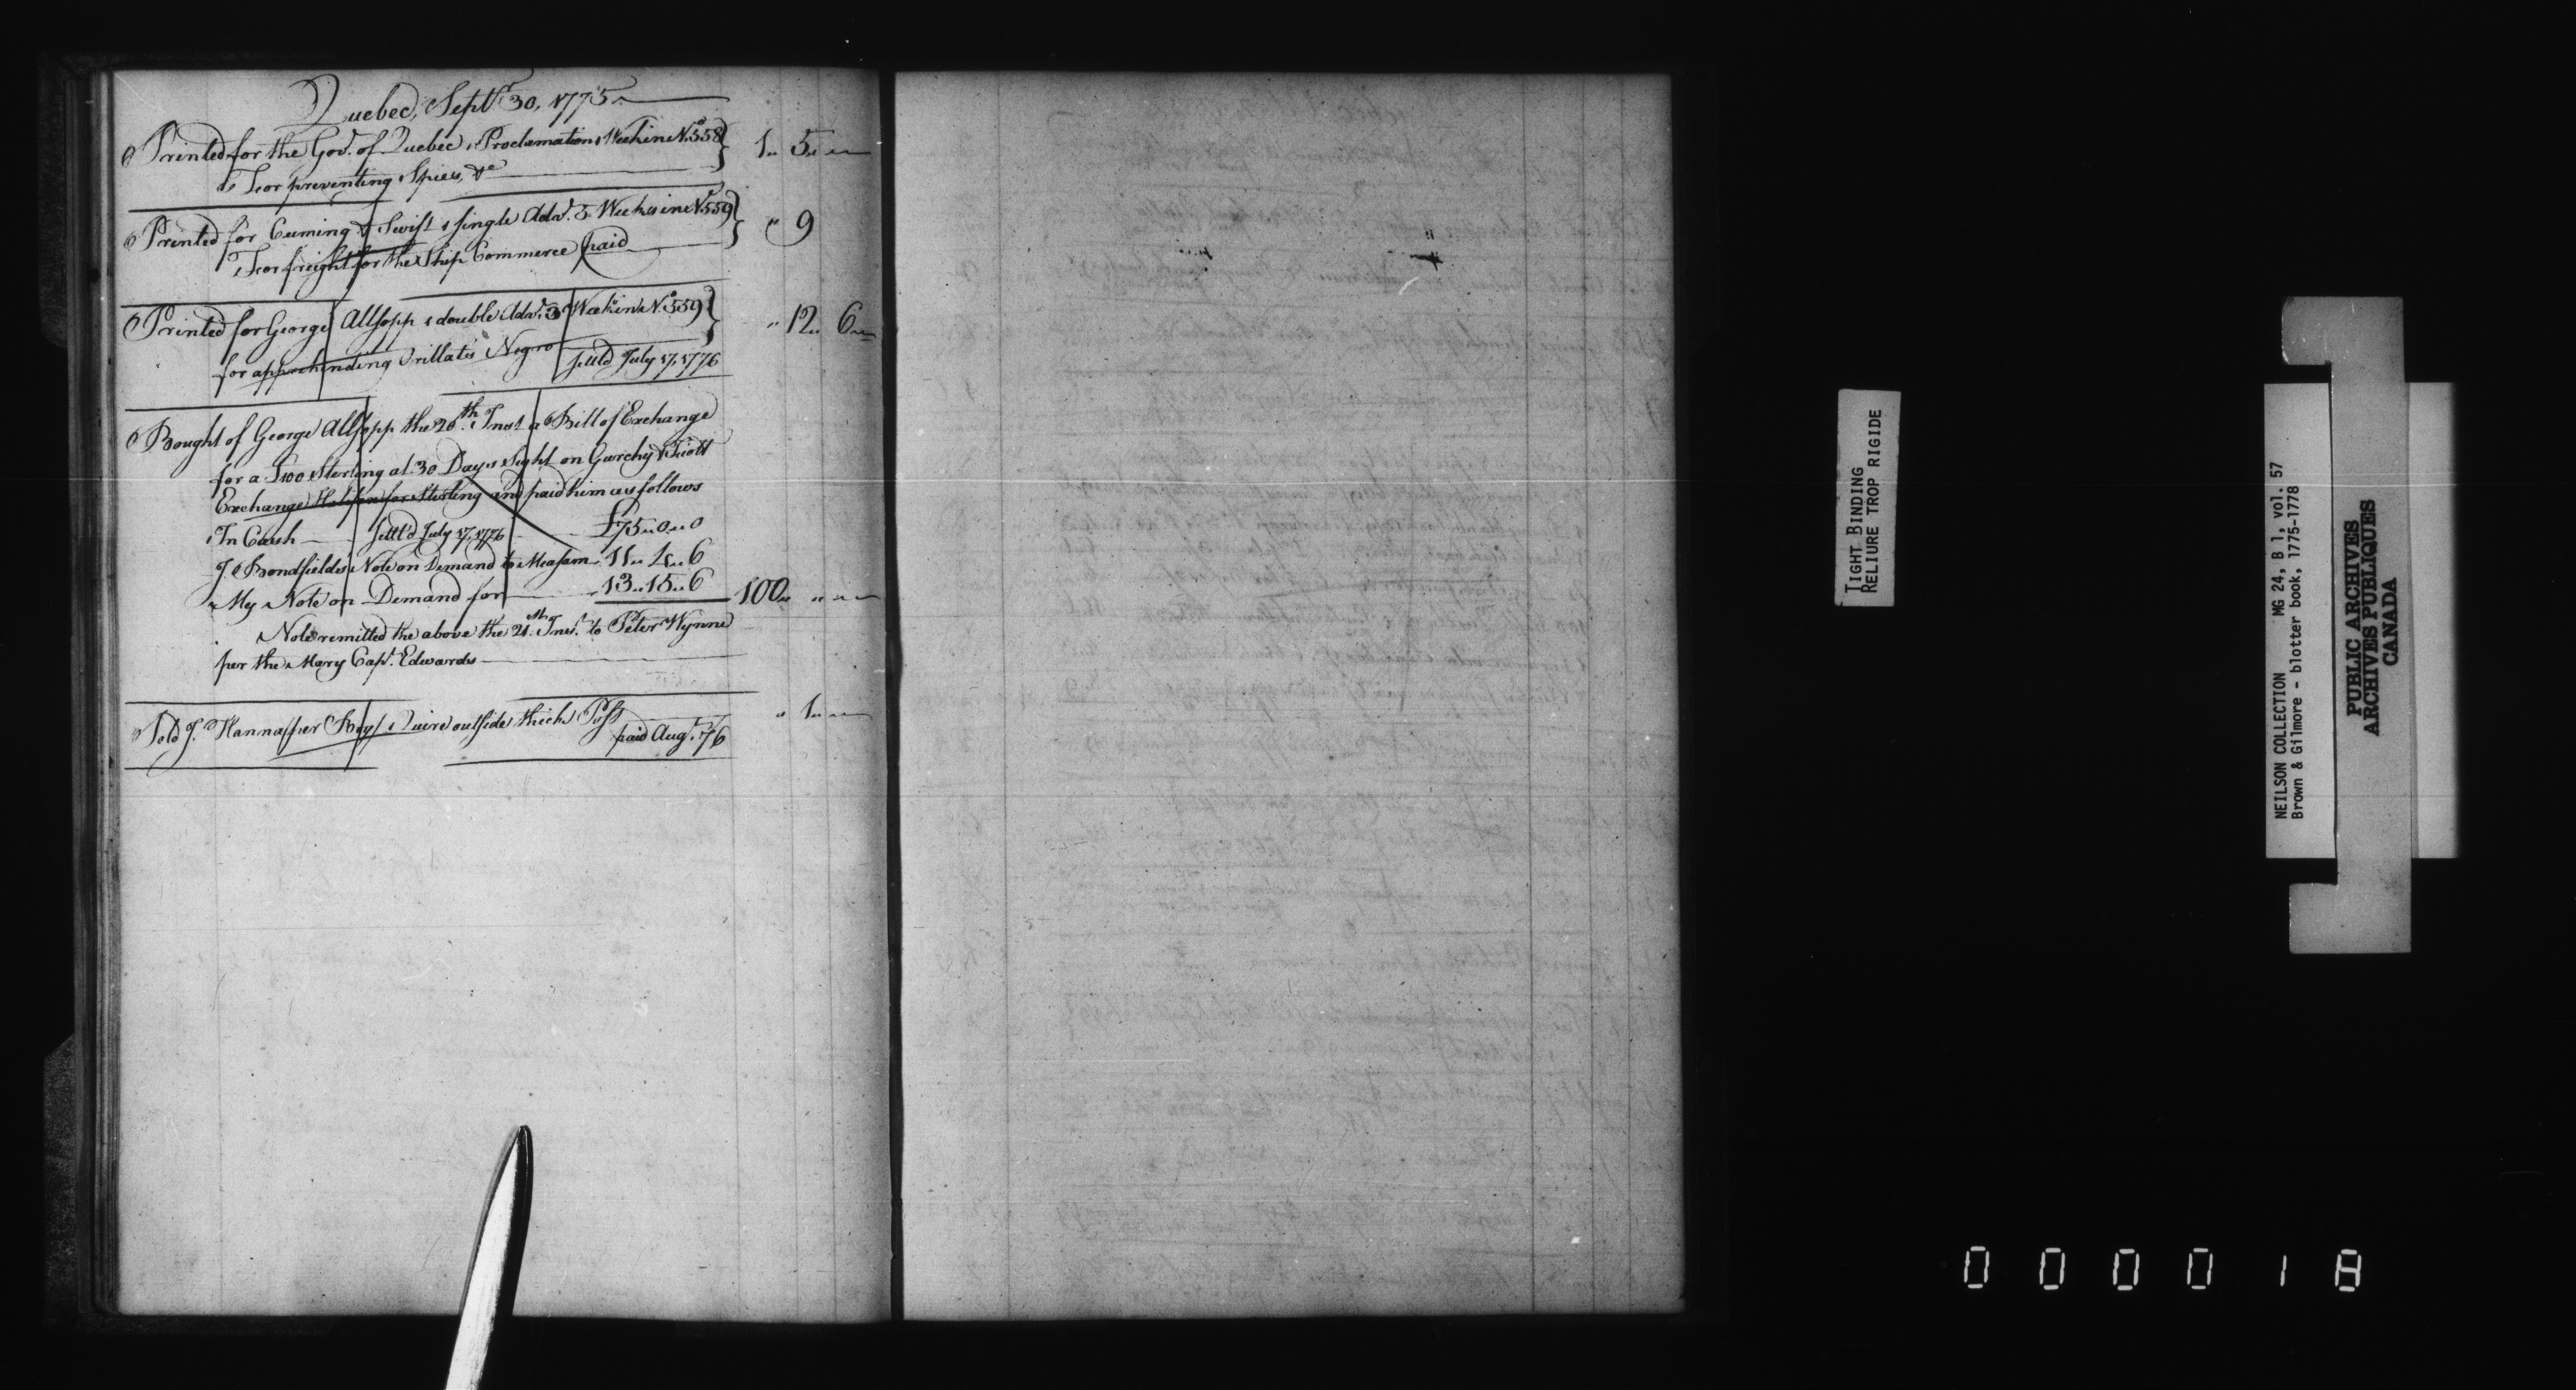 Quebec, Septr. 30, 1775
Printed for the Govt. of Quebec 1 Proclamation 1 Week in No. 558
For preventing Spies, &c
1 5
Printed for Cuming & Swift 1 single Advt. 3 Weeks in No. 559
For freight for the Ship Commerce paid
" 9
Printed for George Allsopp 1 double Advt. 3 Weeks in No. 559
for apprehending Vrillats Negro settd July 17, 1776
" 12 6
Bought of George Allsopp the 20th. Inst a Bill of Exchange
for a £100 Sterling at 30 Days sight on
Exchange Halifax for Sterling and paid him as follows
In Cash settld July 17, 1776 £75 0 0
J. Bondfields Note on Demand to Measam 11 4 6
My Note on Demand for 13 15 6 100 " "
Note remitted the above the 21st. Inst. to Peter Wynne
per the Mary Capt. Edwards
Sold J. Hanna per Boy 1 Quire outside thick Post
paid Augt. 76
" 1
TIGHT BINDING
RELIURE TROP RIGIDE
NEILSON COLLECTION MG 24, B 1, vol. 57
Brown & Gilmore - blotter book, 1775-1778
PUBLIC ARCHIVES
ARCHIVES PUBLIQUES
CANADA
0 0 0 0 1 8